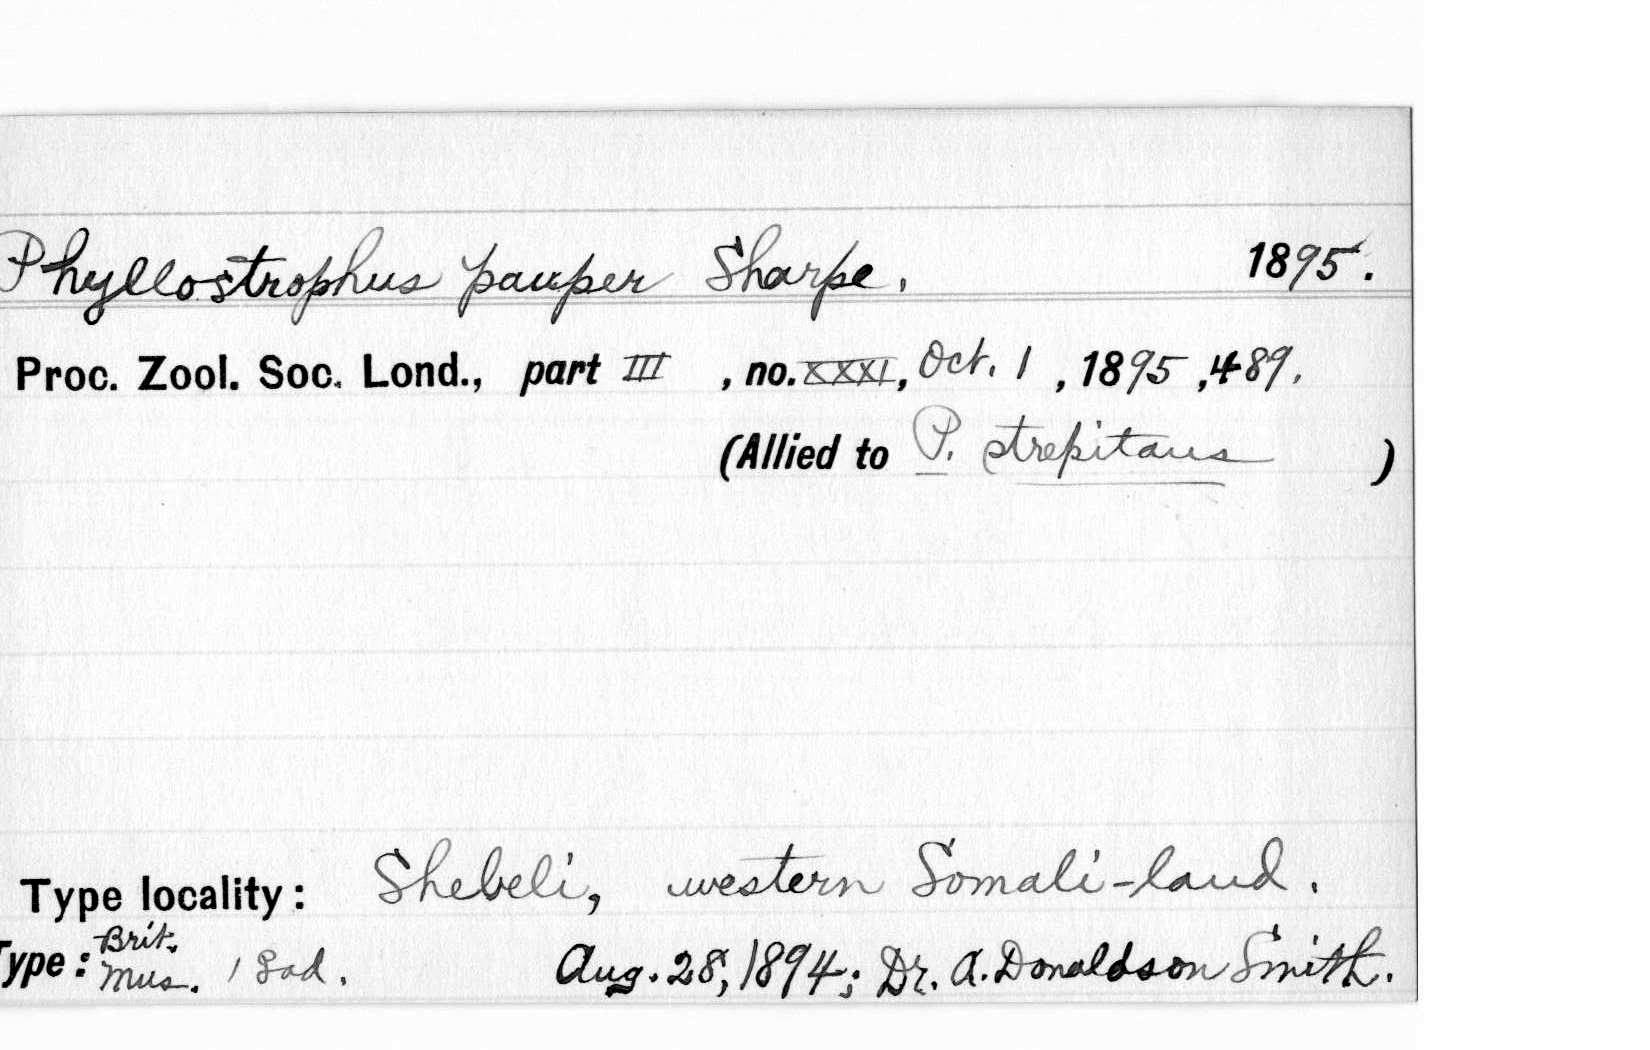 Phyllostrophus pauper Sharpe. 1895.
Proc. Zool. Soc. Lond., part III , no. XXXI, Oct. 1 , 1895 , 489.
(Allied to P. strepitans )
Type locality: Shebeli, western Somali-land.
Type: Brit. Mus. 1 ad. Aug. 28, 1894; Dr. A. Donaldson Smith.